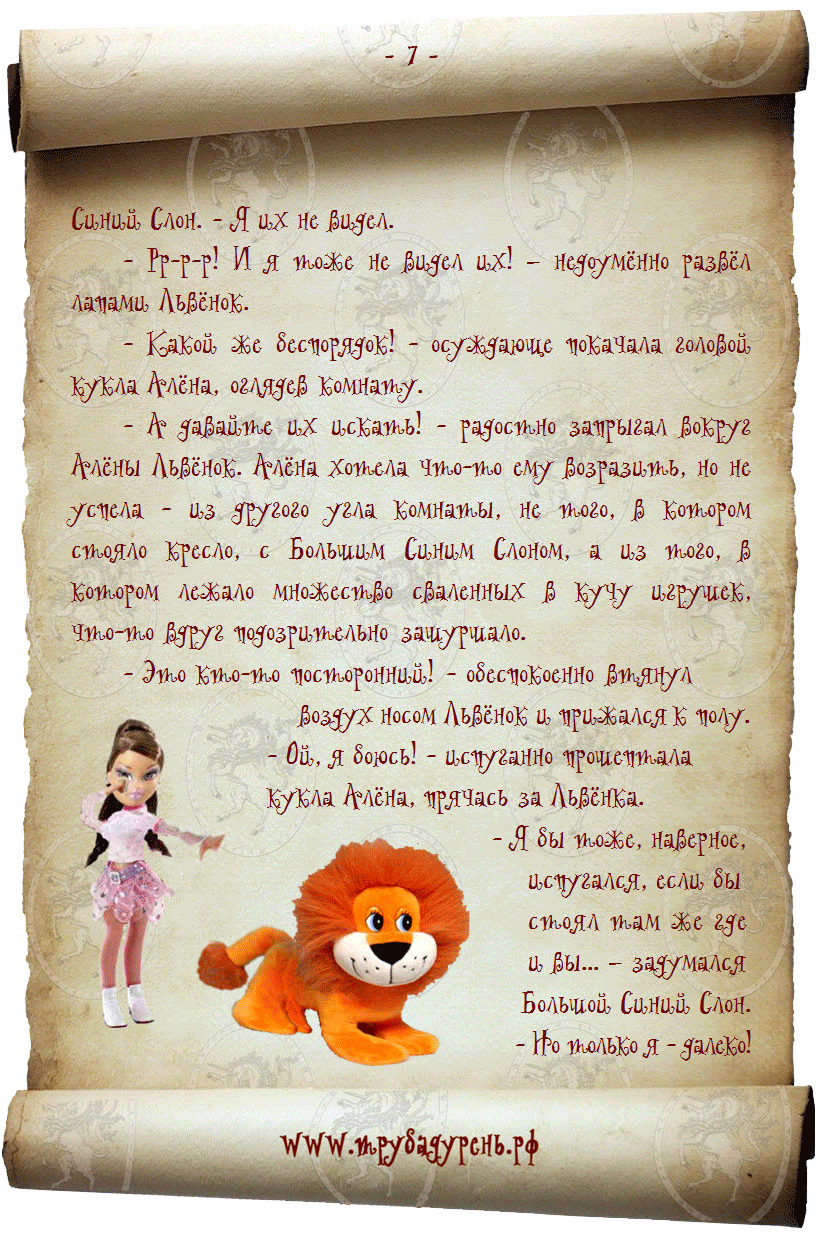 - 7 -
Синий Слон. - Я их не видел.
- Рр-р-р! И я тоже не видел их! – недоумённо развёл
лапами Львёнок.
- Какой же беспорядок! - осуждающе покачала головой
кукла Алёна, оглядев комнату.
- А давайте их искать! - радостно запрыгал вокруг
Алёны Львёнок. Алёна хотела что-то ему возразить, но не
успела - из другого угла комнаты, не того, в котором
стояло кресло, с Большим Синим Слоном, а из того, в
котором лежало множество сваленных в кучу игрушек,
что-то вдруг подозрительно зашуршало.
- Это кто-то посторонний! - обеспокоенно втянул
воздух носом Львёнок и прижался к полу.
- Ой, я боюсь! - испуганно прошептала
кукла Алёна, прячась за Львёнка.
- Я бы тоже, наверное,
испугался, если бы
стоял там же где
и вы... – задумался
Большой Синий Слон.
- Но только я - далеко!
www.трубадурень.рф